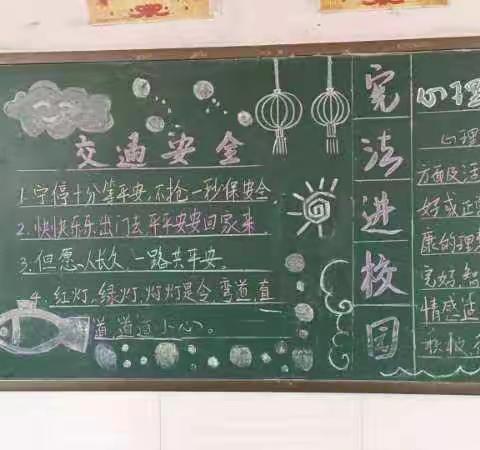 交通安全
1.宁停十分等平安,不抢一秒保安全.
2.快快乐乐出门去平平安安回家来.
3.但愿人长久,一路共平安.
4.红灯.绿灯.灯灯是令,弯道直
道道道小心。
宪法进校园
心理
心理
方面及活
好或正常
康的理想
完好.智
情感适